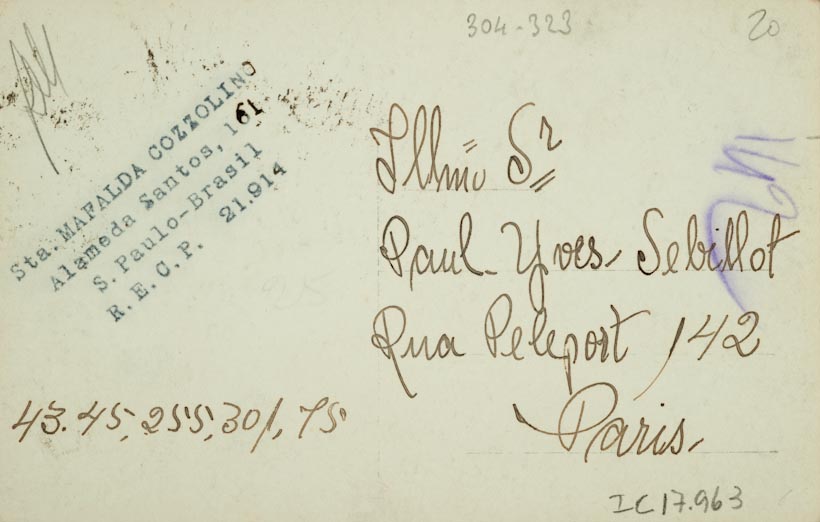 304-323
20
Sta. MAFALDA COZZOLINO
Alameda Santos, 161
S. Paulo-Brasil
R. E. C. P. 21.914
Illmo Sr
Paul-Yves Sebillot
Rua Peleport 142
Paris
43.45, 255, 301, 75
IC 17.963